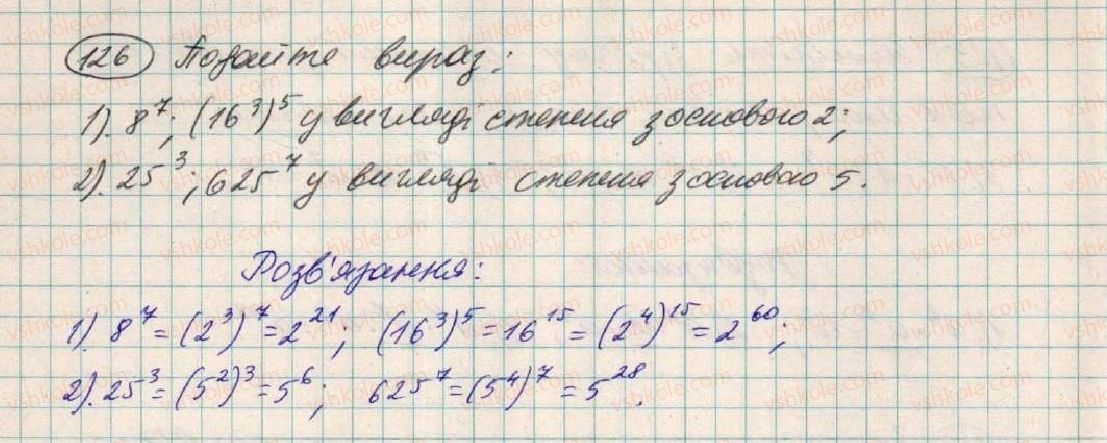 126 Подайте вираз:
1). 8⁷; (16³)⁵ у вигляді степеня з основою 2;
2). 25³; 625⁷ у вигляді степеня з основою 5.
Розв'язання:
1). 8⁷ = (2³)⁷ = 2²¹; (16³)⁵ = 16¹⁵ = (2⁴)¹⁵ = 2⁶⁰;
2). 25³ = (5²)³ = 5⁶; 625⁷ = (5⁴)⁷ = 5²⁸.
vshkole.com